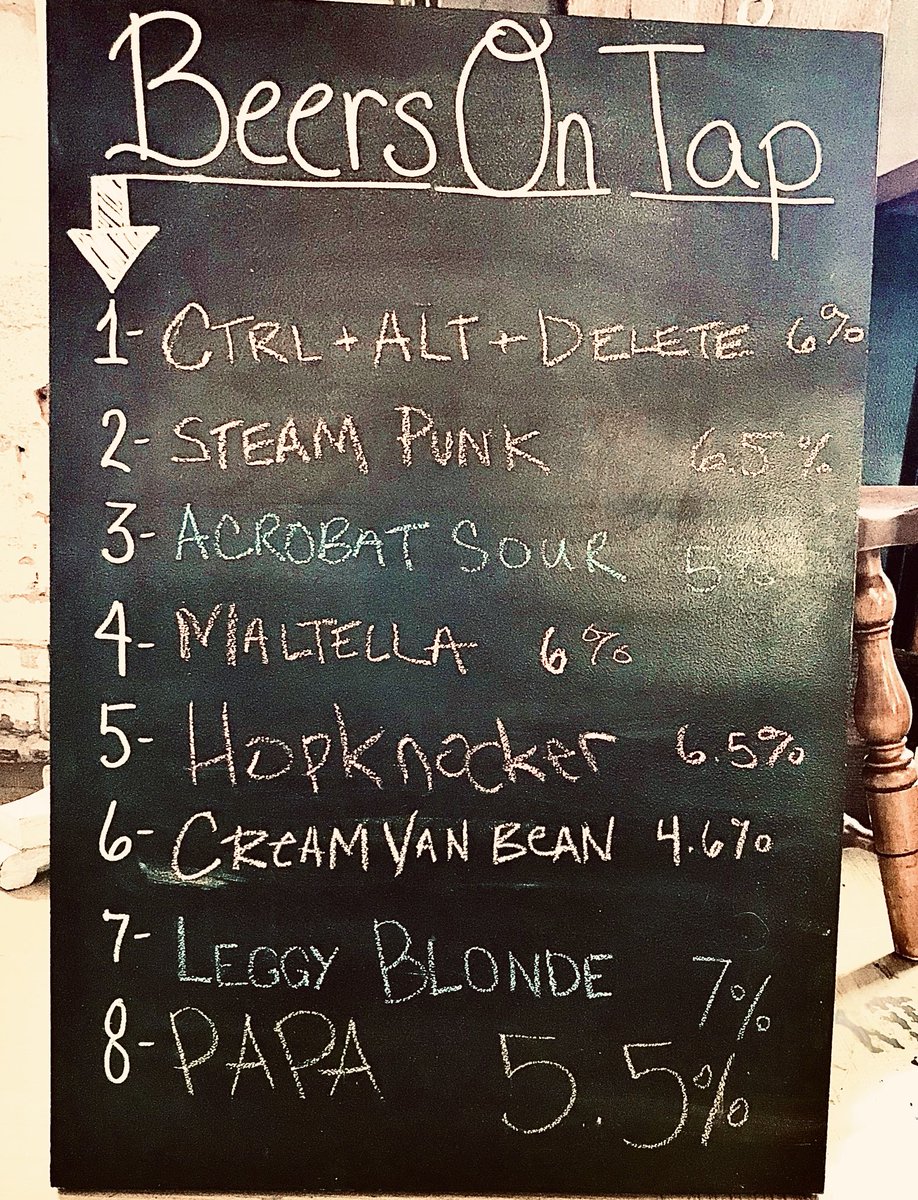 Beers On Tap
1- CTRL + ALT + DELETE 6%
2- STEAM PUNK 6.5%
3- ACROBAT SOUR 5%
4- MALTELLA 6%
5- Hopknocker 6.5%
6- CReAM VAN BeAN 4.6%
7- LEGGY BLONDE 7%
8- PAPA 5.5%